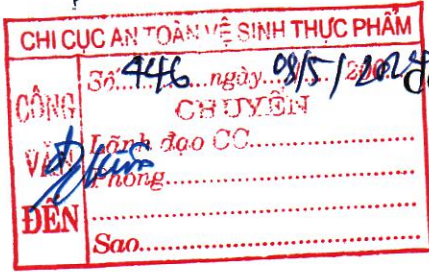 CHI CỤC AN TOÀN VỆ SINH THỰC PHẨM
CÔNG VĂN ĐẾN
Số 446 ngày 08/5/
CHUYỂN
Lãnh đạo CC
Phòng
Sao